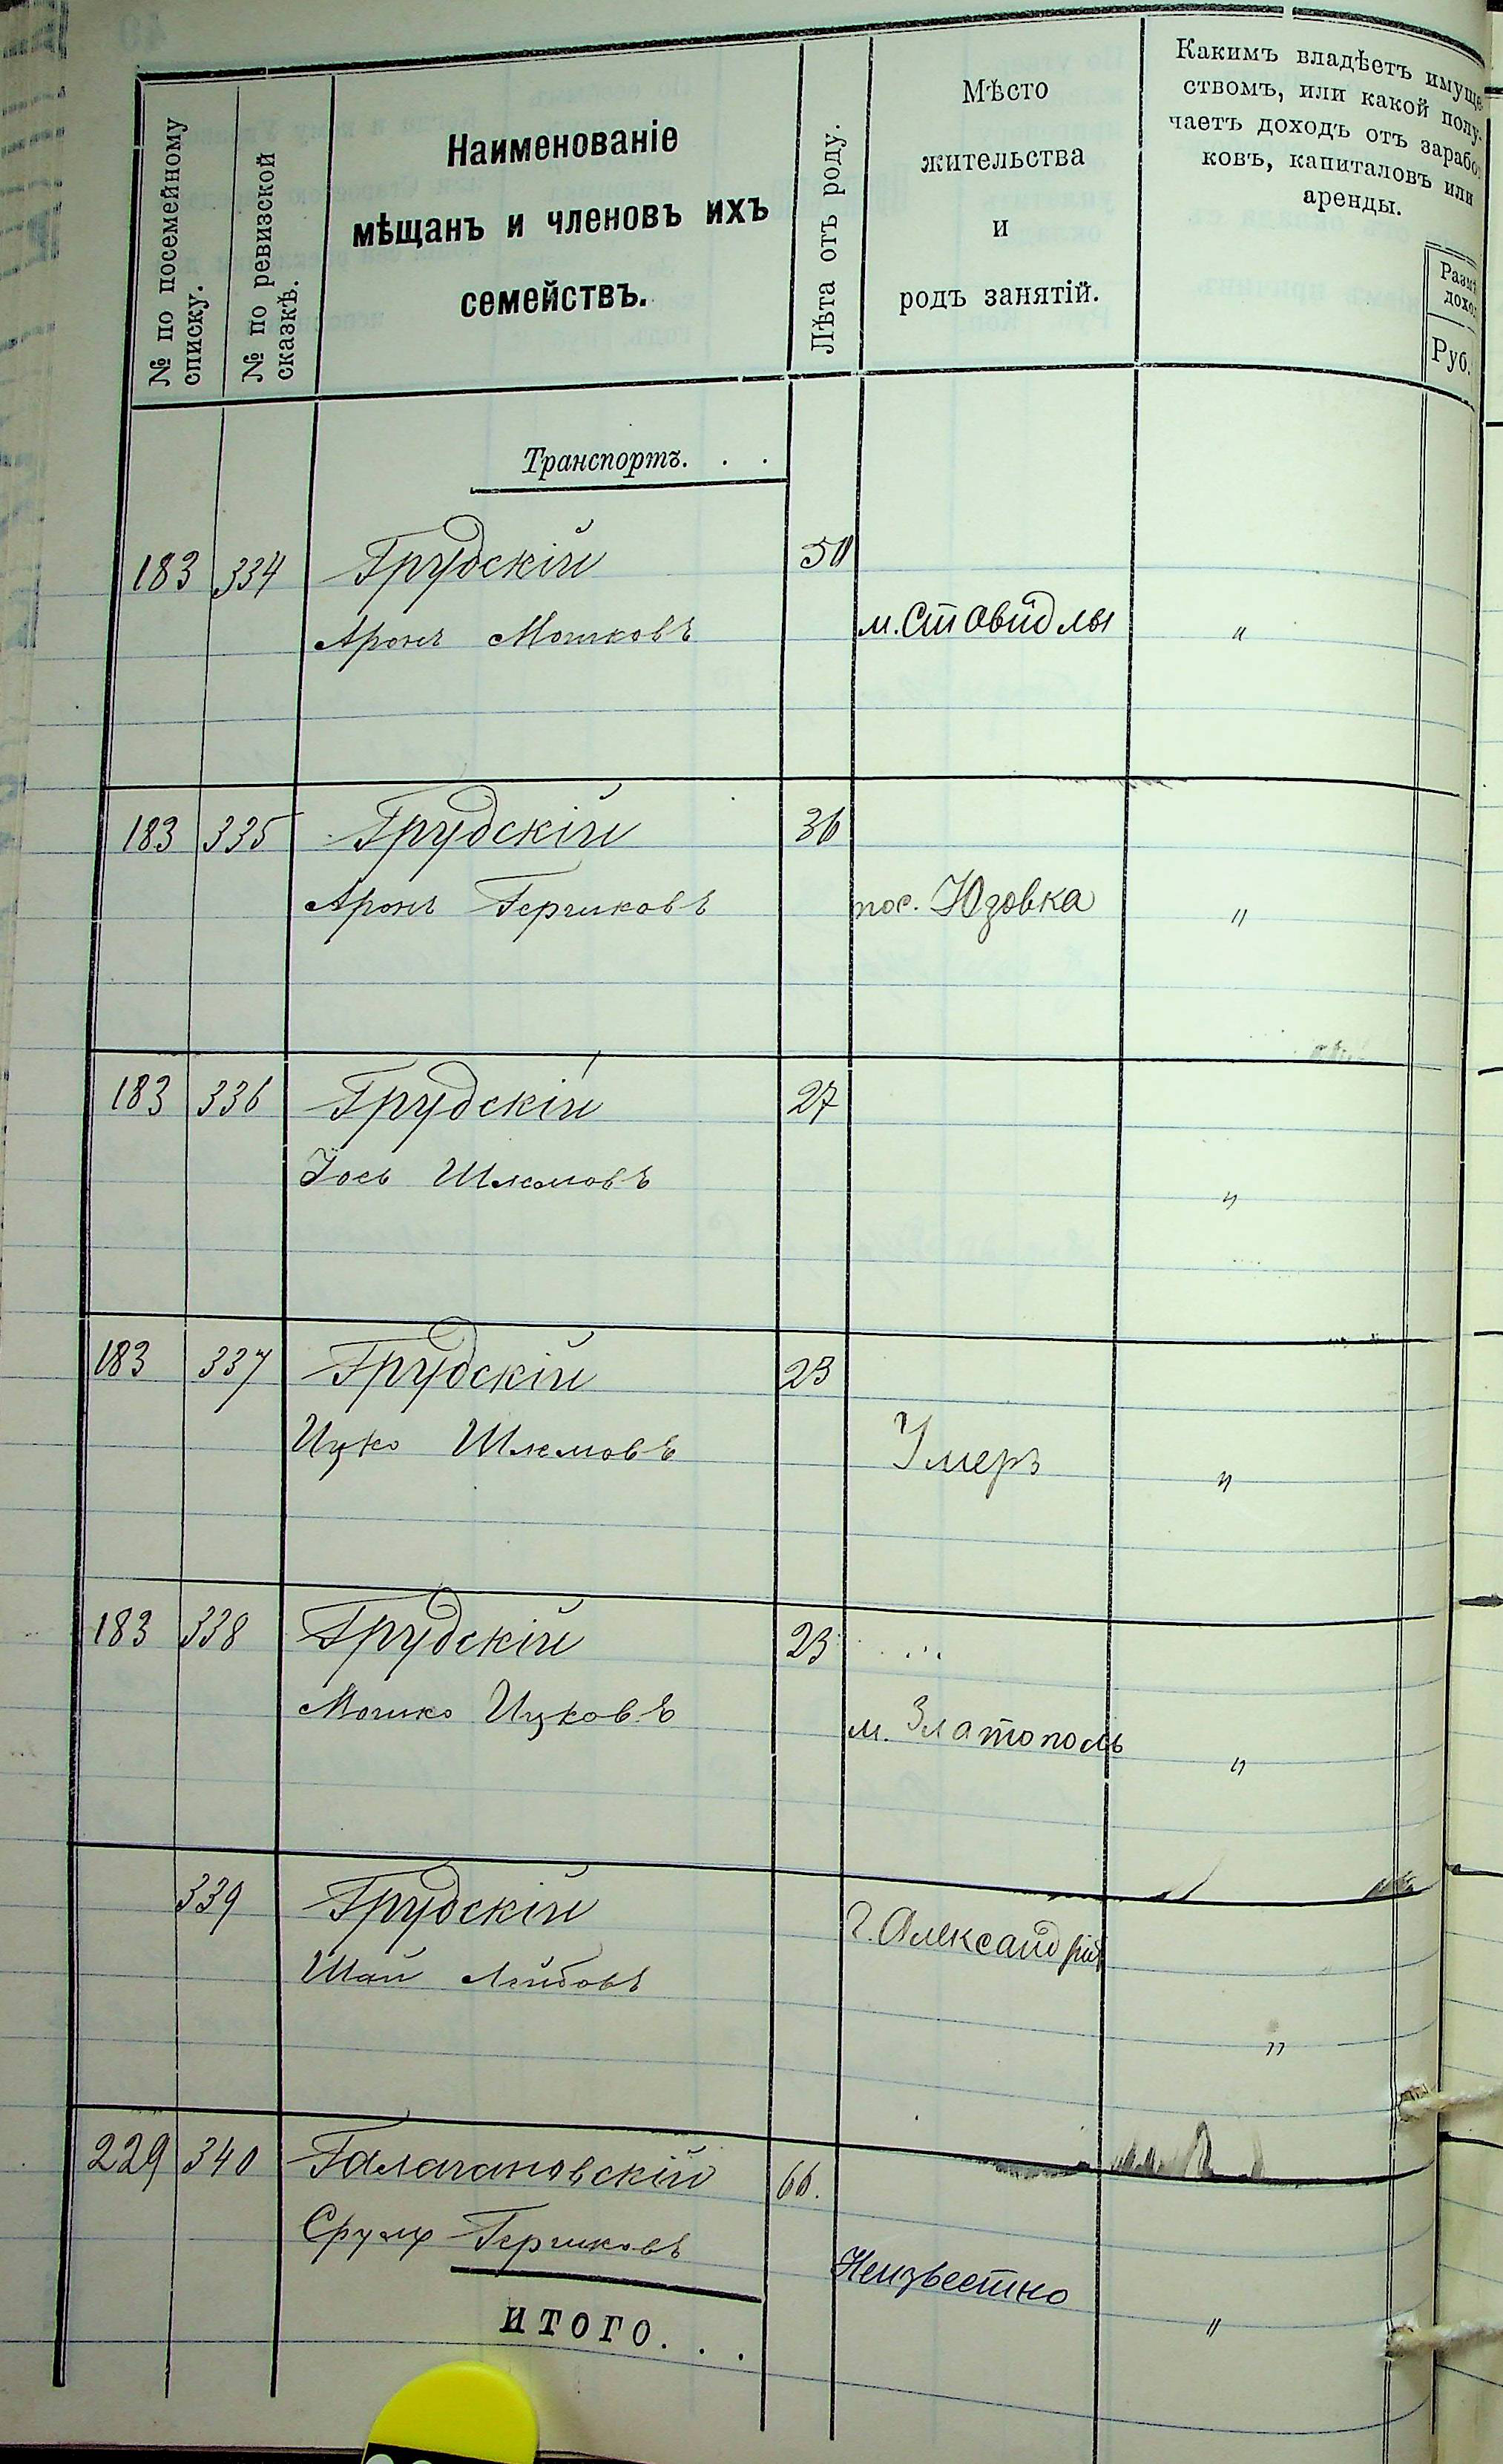 № по посемейному
списку.
№ по ревизской
сказкѣ.
Наименованіе
мѣщанъ и членовъ ихъ
семействъ.
Лѣта отъ роду.
Мѣсто
жительства
и
родъ занятій.
Какимъ владѣетъ имуще-
ствомъ, или какой полу-
чаетъ доходъ отъ зарабо
ковъ, капиталовъ или
аренды.
Разм
дохо
Руб.
Транспортъ. . .
183 334 Грудскій 50
Аронъ Мошковъ м. Ставидлы "
183 335 Грудскій 36
Аронъ Гершковъ пос. Юзовка "
183 336 Грудскій 27
Іось Шлемовъ "
183 337 Грудскій 23
Ицко Шлемовъ Умеръ "
183 338 Грудскій 23
Мошко Ицковъ м. Златополь "
339 Грудскій г. Александрія
Шая Лейбовъ "
229 340 Галагановскій 66.
Сруль Гершковъ Неизвестно "
ИТОГО. . .